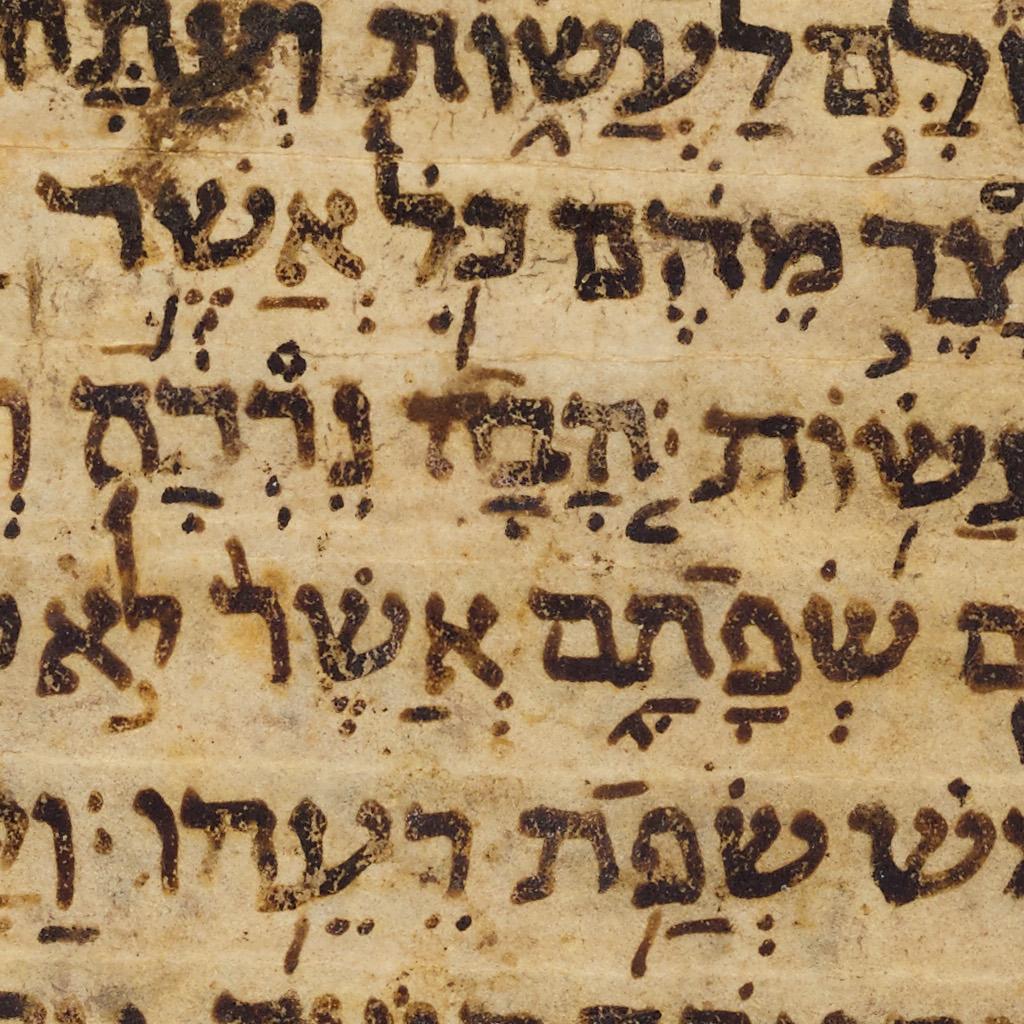 לָּם לַעֲשׂוֹת וְעַתָּה
צֵר מֵהֶם כֹּל אֲשֶׁר
עֲשׂוֹת׃ הָבָה נֵרְדָה
ם שְׂפָתָם אֲשֶׁר לֹא
יש שְׂפַת רֵעֵהוּ׃ וַ